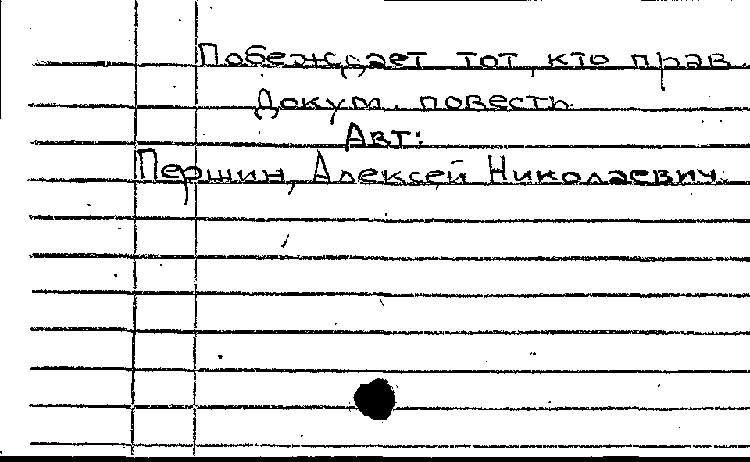 Побеждает тот, кто прав.
Докум. повесть
Авт:
Першин, Алексей Николаевич.